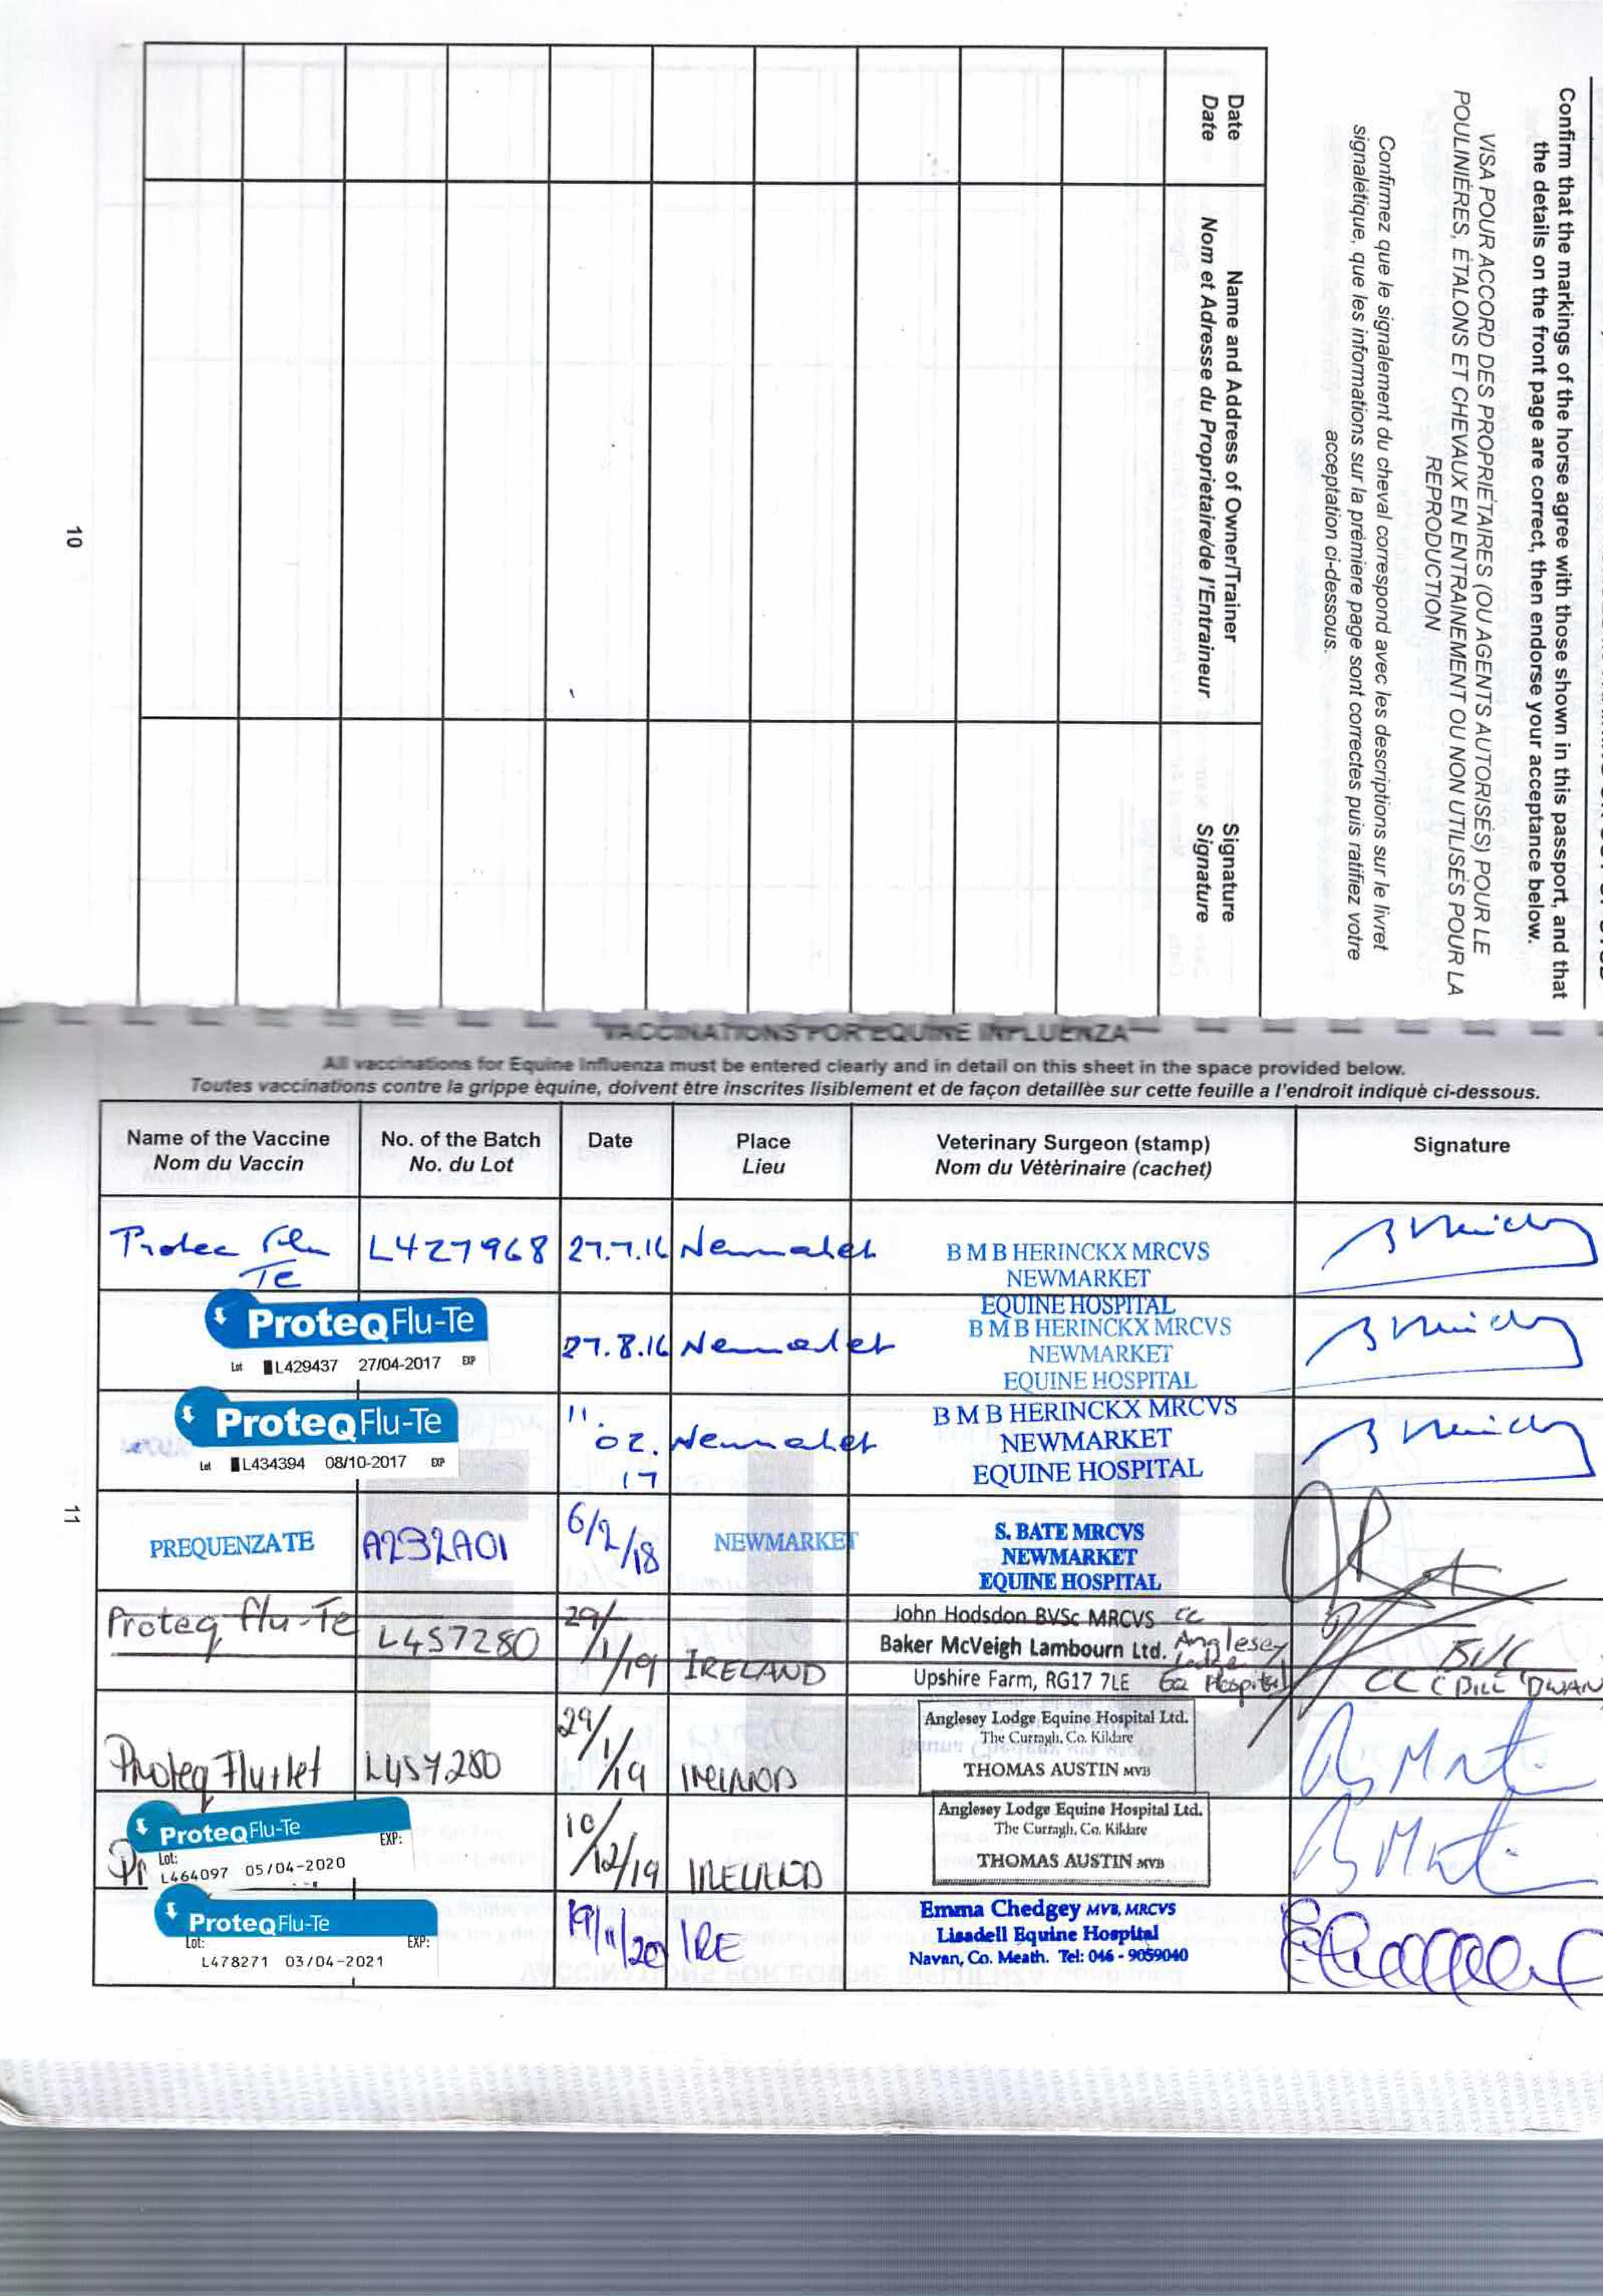 Confirm that the markings of the horse agree with those shown in this passport, and that
the details on the front page are correct, then endorse your acceptance below.
VISA POUR ACCORD DES PROPRIÉTAIRES (OU AGENTS AUTORISÉS) POUR LE
POULINIÈRES, ÉTALONS ET CHEVAUX EN ENTRAINEMENT OU NON UTILISÉS POUR LA
REPRODUCTION
Confirmez que le signalement du cheval correspond avec les descriptions sur le livret
signalétique, que les informations sur la prémiere page sont correctes puis ratifiez votre
acceptation ci-dessous.
Date Name and Address of Owner/Trainer Signature
Date Nom et Adresse du Proprietaire/de l'Entraineur Signature
10
VACCINATIONS FOR EQUINE INFLUENZA
All vaccinations for Equine Influenza must be entered clearly and in detail on this sheet in the space provided below.
Toutes vaccinations contre la grippe équine, doivent être inscrites lisiblement et de façon detaillèe sur cette feuille a l'endroit indiquè ci-dessous.
Name of the Vaccine No. of the Batch Date Place Veterinary Surgeon (stamp) Signature
Nom du Vaccin No. du Lot Lieu Nom du Vètèrinaire (cachet)
Proteq Flu L427968 27.7.16 Newmarket B M B HERINCKX MRCVS
Te NEWMARKET
EQUINE HOSPITAL
ProteqFlu-Te 27.8.16 Newmarket B M B HERINCKX MRCVS
NEWMARKET
Lot L429437 27/04-2017 EXP
EQUINE HOSPITAL
ProteqFlu-Te 11. B M B HERINCKX MRCVS
02. Newmarket NEWMARKET
Lot L434394 08/10-2017 EXP
17 EQUINE HOSPITAL
11
PREQUENZATE A232A01 6/2/18 NEWMARKET S. BATE MRCVS
NEWMARKET
EQUINE HOSPITAL
Proteq flu-Te L457280 29/1/19 IRELAND John Hodsdon BVSc MRCVS CC
Baker McVeigh Lambourn Ltd. Anglesey Lodge
Upshire Farm, RG17 7LE Eq Hospital CC (BILL DWAN
Proteq Flu+tet L457280 29/1/19 IRELAND Anglesey Lodge Equine Hospital Ltd.
The Curragh, Co. Kildare
THOMAS AUSTIN MVB
ProteqFlu-Te EXP: 10/12/19 IRELAND Anglesey Lodge Equine Hospital Ltd.
Pr Lot: The Curragh, Co. Kildare
L464097 05/04-2020 THOMAS AUSTIN MVB
ProteqFlu-Te 19/11/20 IRE Emma Chedgey MVB, MRCVS
Lot: EXP: Lisadell Equine Hospital
L478271 03/04-2021 Navan, Co. Meath. Tel: 046 - 9059040